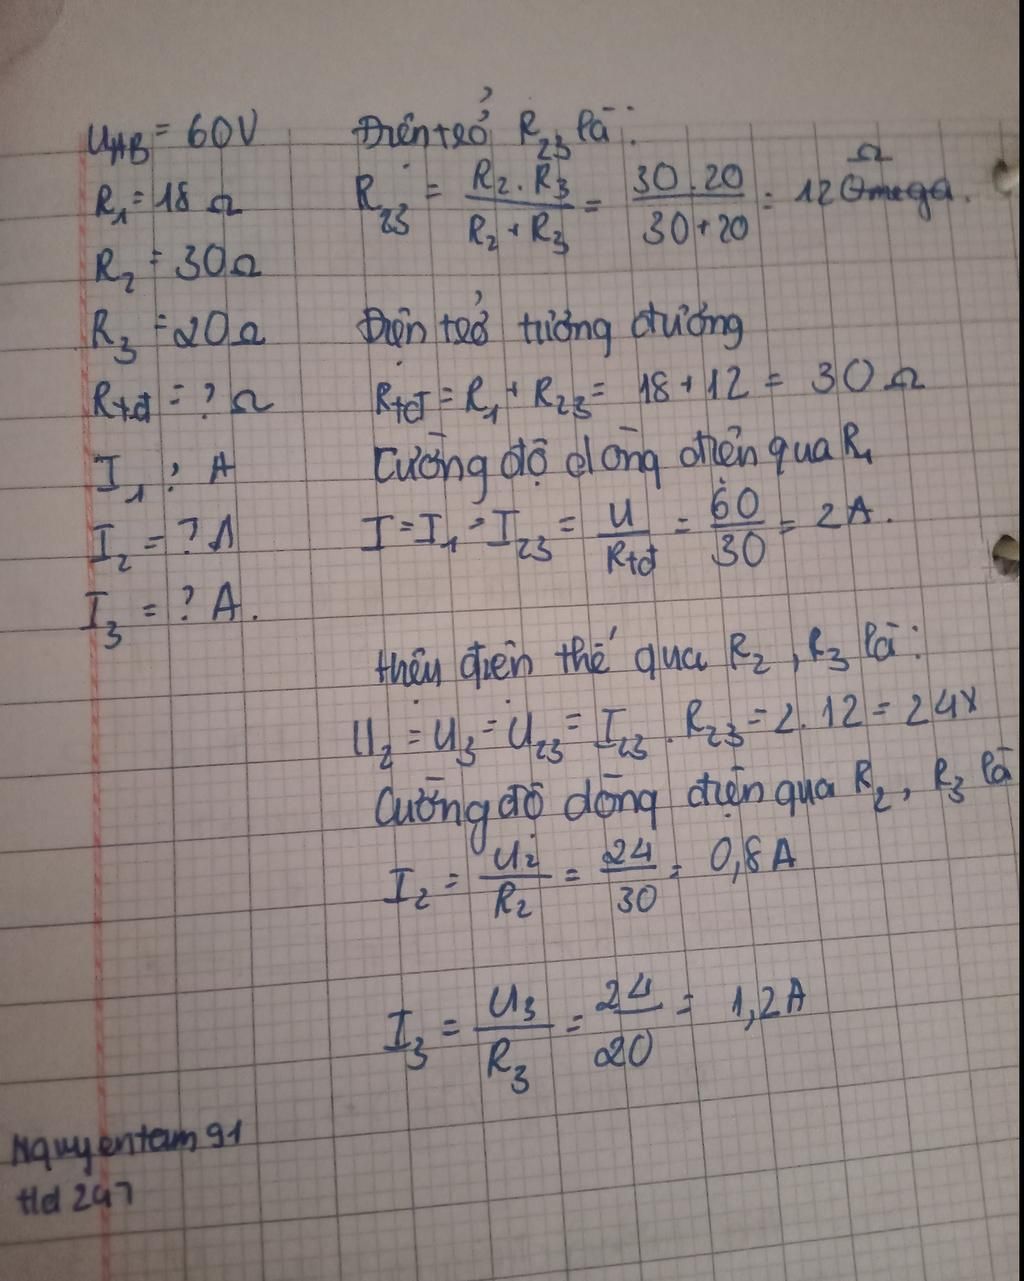 U_AB = 60V
R₁ = 18 Ω
R₂ = 30Ω
R₃ = 20Ω
Rtđ = ? Ω
I₁ ? A
I₂ = ? A
I₃ = ? A.
Điện trở R₂₃ là:
R₂₃ = R₂.R₃ / R₂+R₃ = 30.20 / 30+20 = 12 Omega. Ω
Điện trở tương đương
Rtđ = R₁ + R₂₃ = 18 + 12 = 30 Ω
Cường độ dòng điện qua R₁
I = I₁ = I₂₃ = U / Rtđ = 60 / 30 = 2A.
Hiệu điện thế qua R₂, R₃ là:
U₂ = U₃ = U₂₃ = I₂₃ . R₂₃ = 2.12 = 24V
Cường độ dòng điện qua R₂, R₃ là
I₂ = U₂ / R₂ = 24 / 30 = 0,8A
I₃ = U₃ / R₃ = 24 / 20 = 1,2A
Nguyentam 91
Hd 247